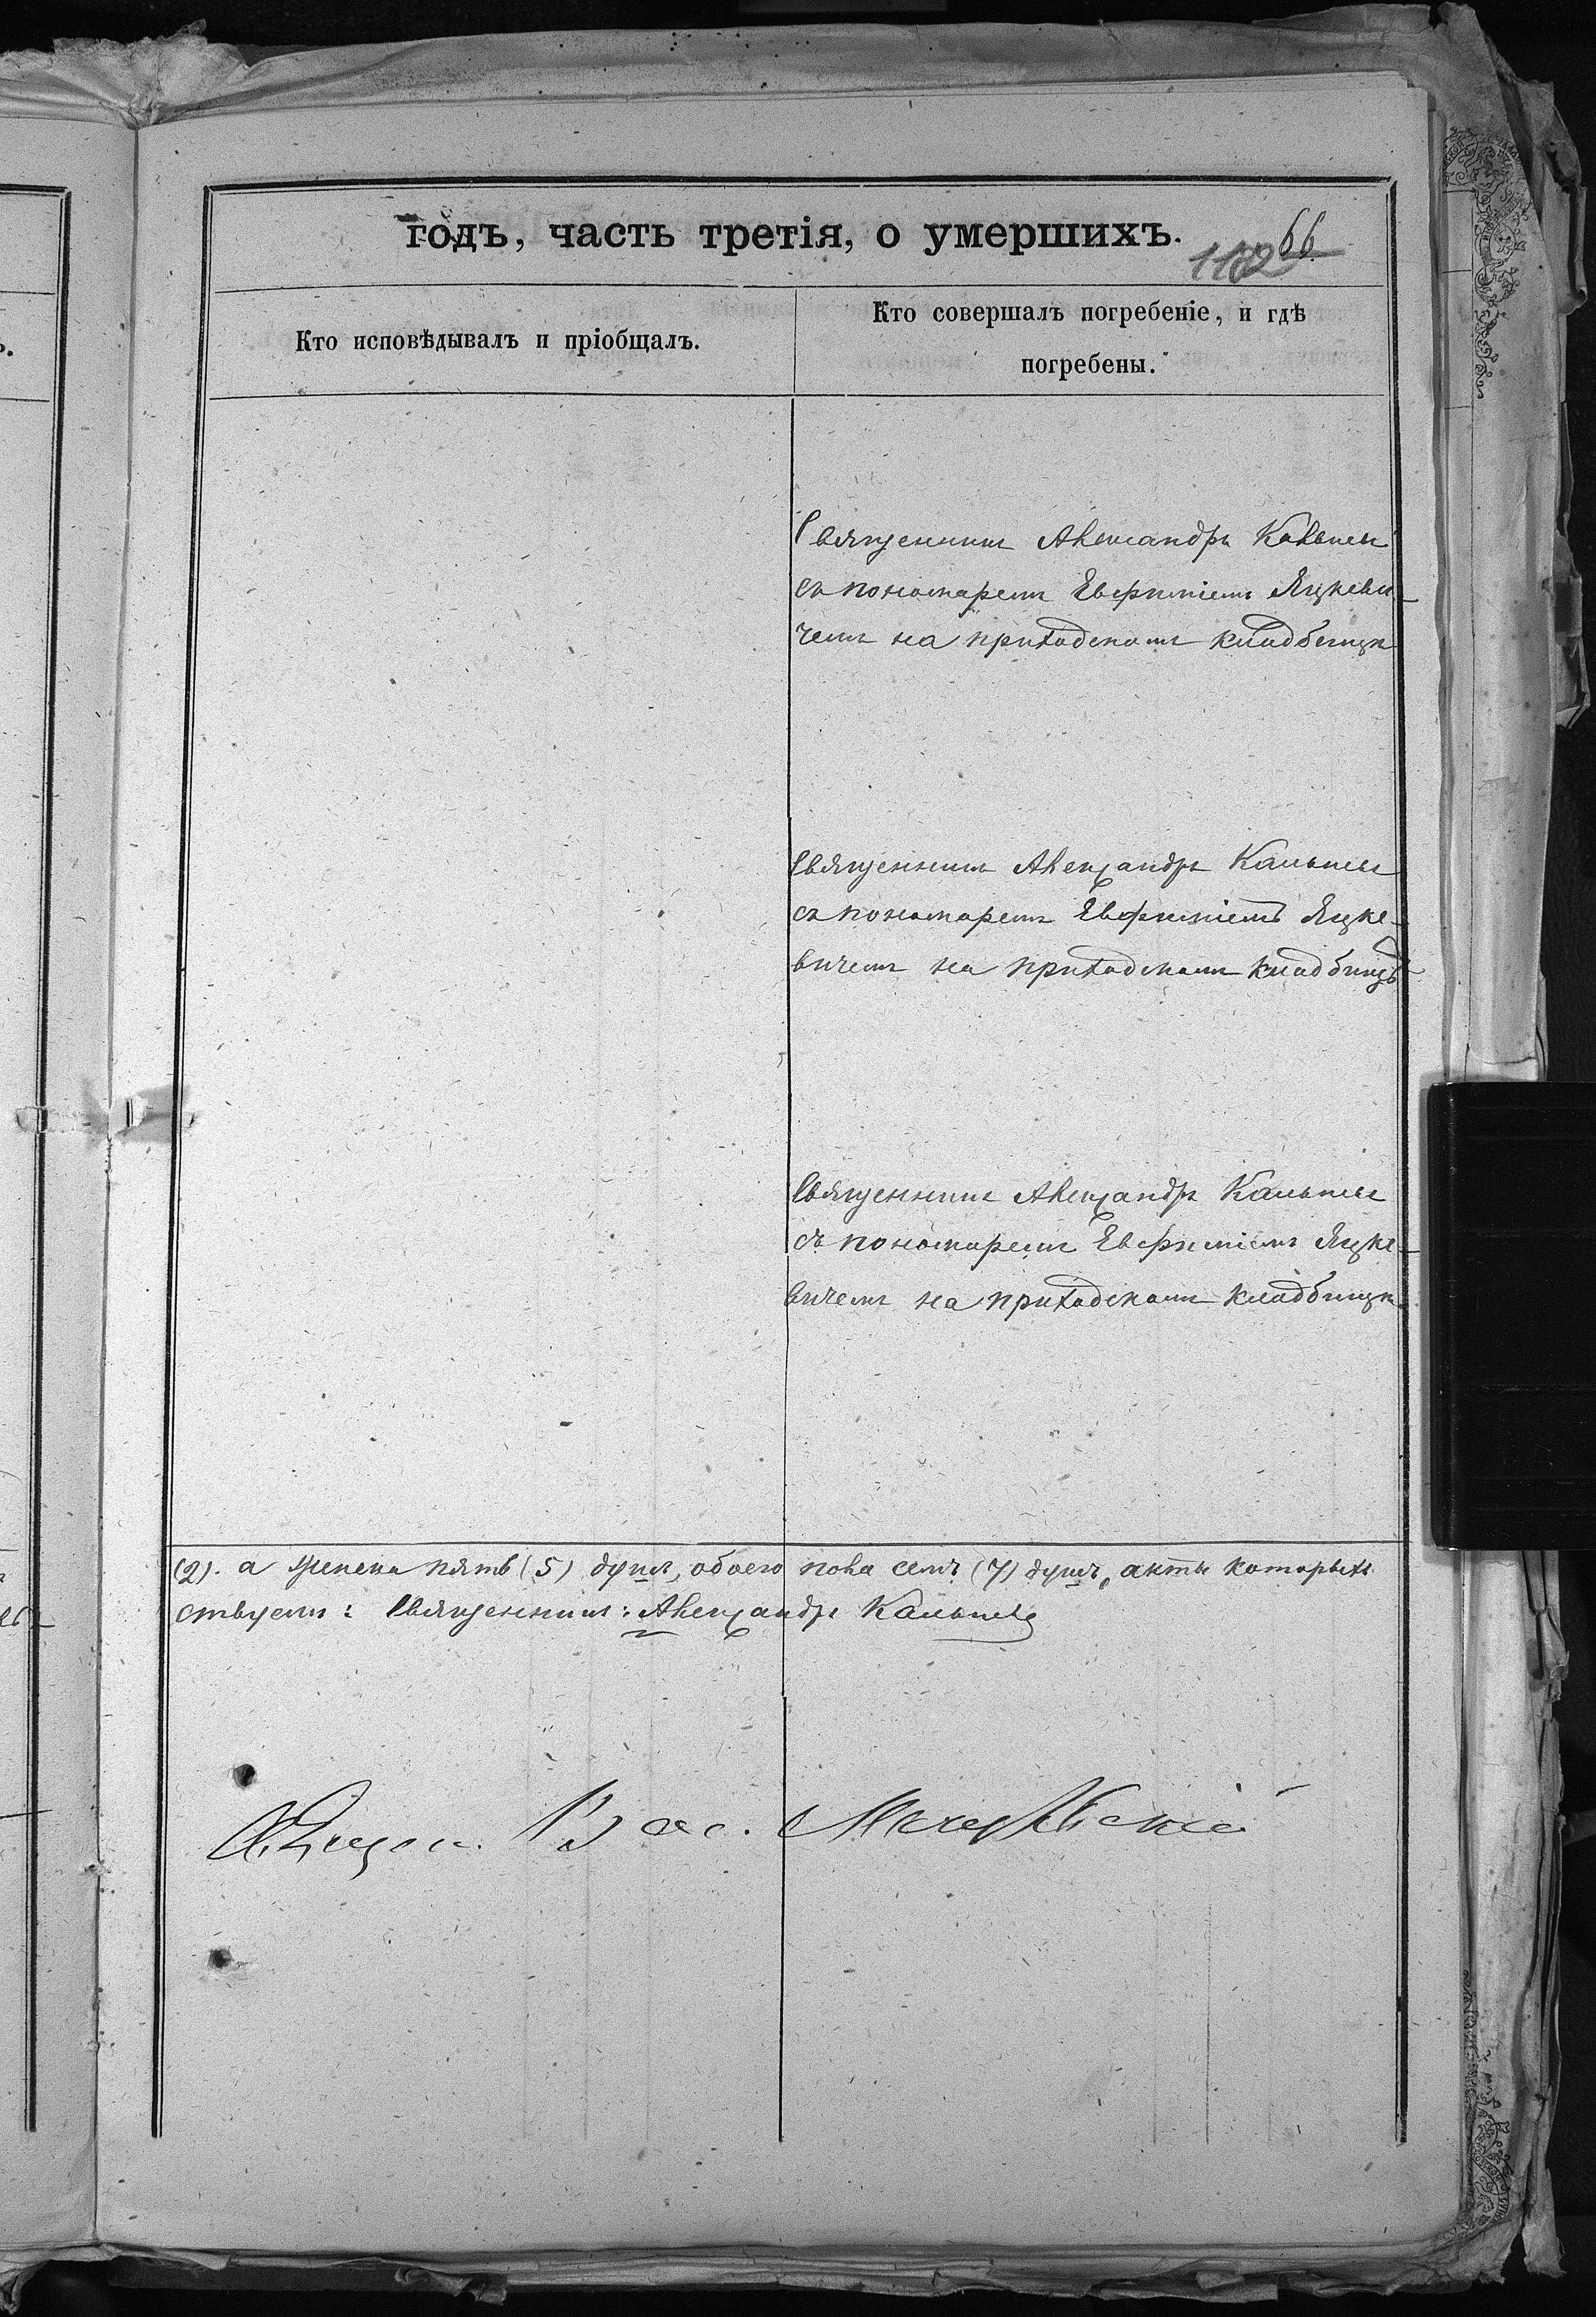 годъ, часть третія, о умершихъ.
66.
1102
Кто исповѣдывалъ и пріобщалъ.
Кто совершалъ погребеніе, и гдѣ
погребены.
Священникъ Александръ Кальнев
съ пономаремъ Евфиміемъ Яцкеви-
чемъ на приходскомъ кладбищѣ
Священникъ Александръ Кальнев
съ пономаремъ Евфиміемъ Яцке-
вичемъ на приходскомъ кладбищѣ
Священникъ Александръ Кальнев
съ пономаремъ Евфиміемъ Яцке-
вичемъ на приходскомъ кладбищѣ
(2). а женска пять (5) душъ, обоего пола семь (7) душъ, акты которыхъ
ствуемъ: Священникъ: Александръ Кальнев
Вас.